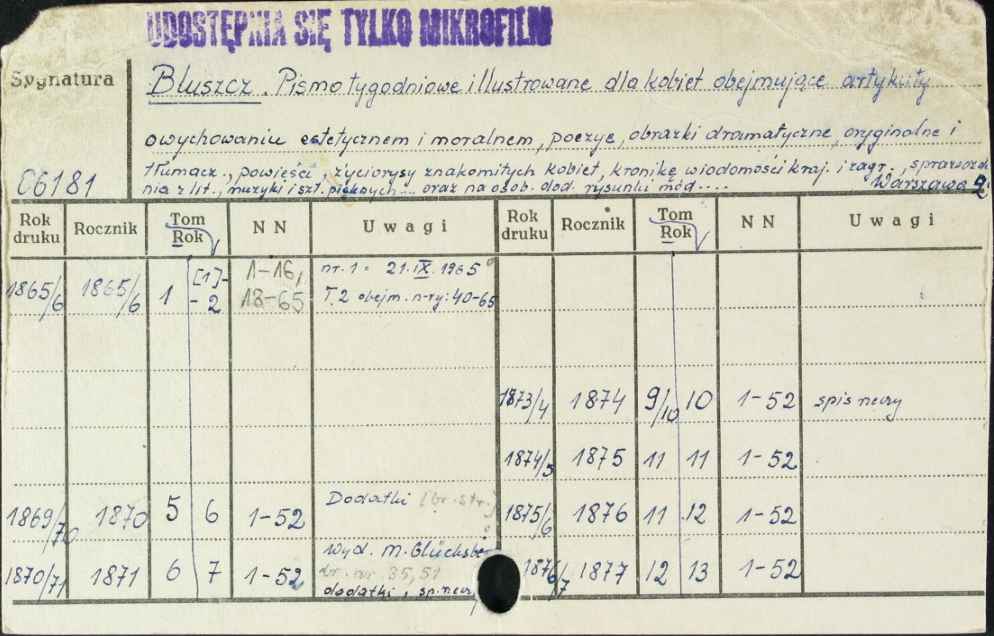 UDOSTĘPNIA SIĘ TYLKO MIKROFILM
Sygnatura
06181
Bluszcz. Pismo tygodniowe illustrowane dla kobiet obejmujące artykuły
o wychowaniu estetycznem i moralnem, poezye, obrazki dramatyczne, oryginalne i
tłumacz., powieści, życiorysy znakomitych kobiet, kronikę wiadomości kraj. i zagr., sprawozda
nia z lit., muzyki i szt. pięknych... oraz na osob. dod. rysunki mód.... Warszawa
Rok druku Rocznik Tom Rok NN Uwagi Rok druku Rocznik Tom Rok NN Uwagi
1865/6 1865/6 1 [1]-2 1-16, 18-65 nr. 1 = 21.IX.1965
T. 2 obejm. n-ry: 40-65
1873/4 1874 9/10 10 1-52 spis nlery
1874/5 1875 11 11 1-52
1869/70 1870 5 6 1-52 Dodatki (br. str.) 1875/6 1876 11 12 1-52
1870/71 1871 6 7 1-52 Wyd. M. Glücksbe 1876/7 1877 12 13 1-52
br. nr. 35, 51
dodatki,